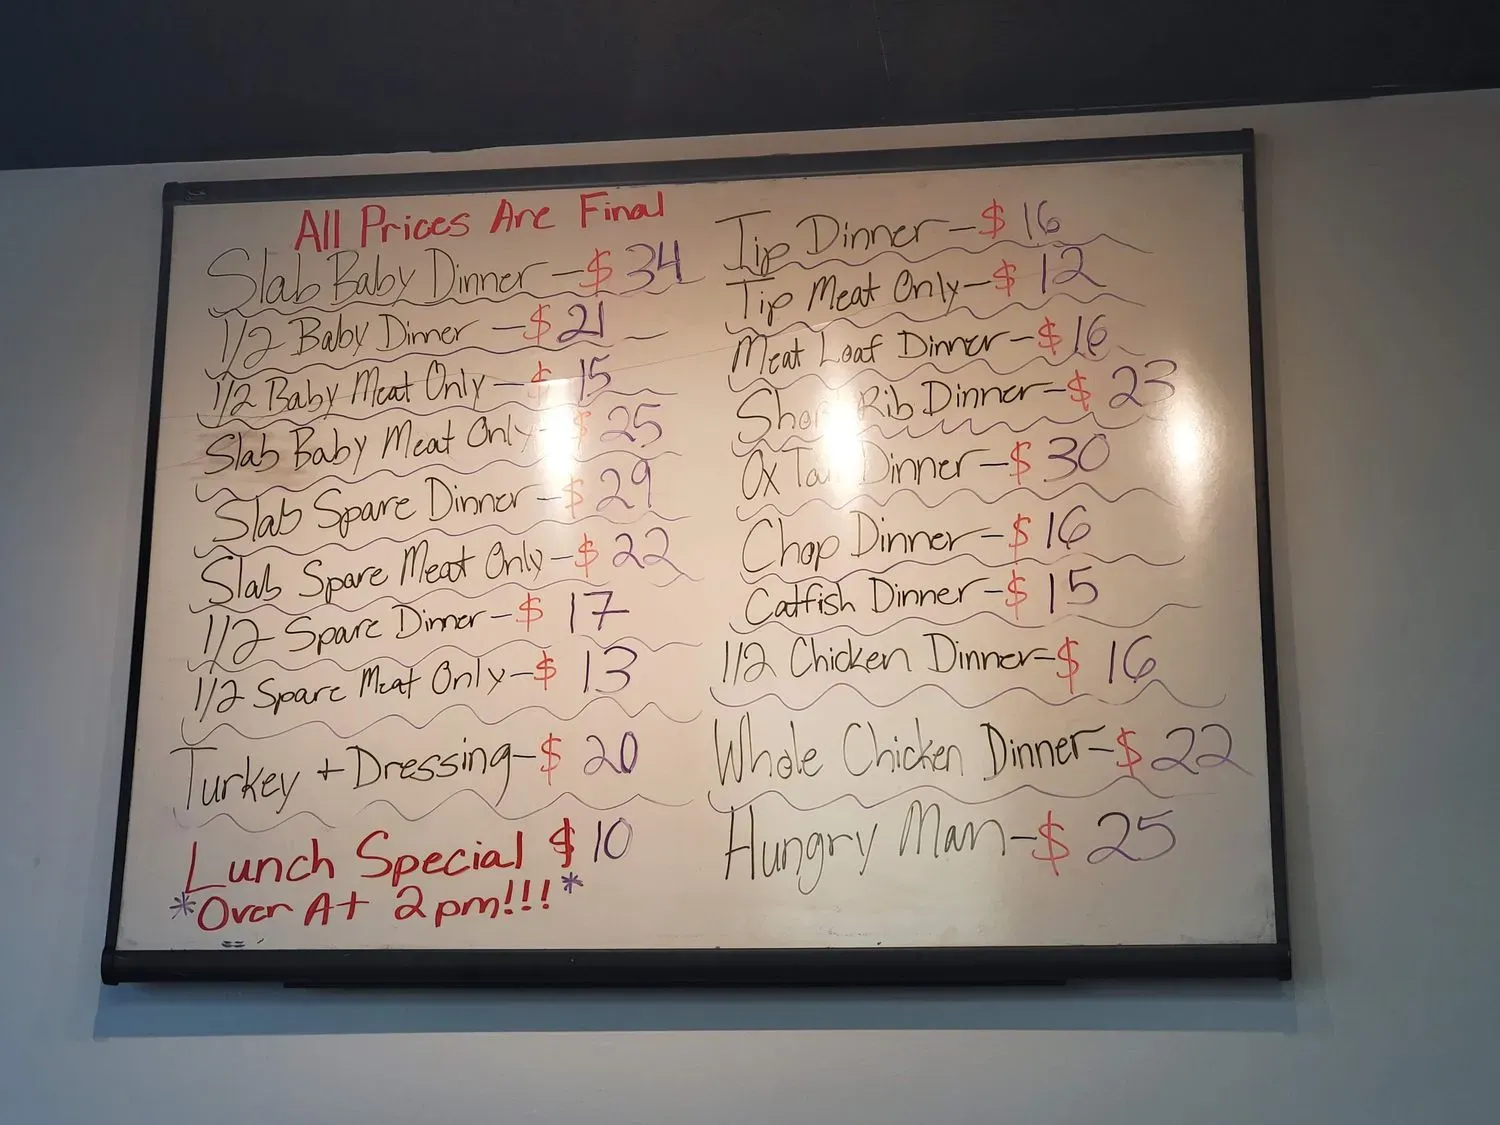 All Prices Are Final
Slab Baby Dinner - $ 34
1/2 Baby Dinner - $ 21
1/2 Baby Meat Only - $ 15
Slab Baby Meat Only - $ 25
Slab Spare Dinner - $ 29
Slab Spare Meat Only - $ 22
1/2 Spare Dinner - $ 17
1/2 Spare Meat Only - $ 13
Turkey + Dressing - $ 20
Lunch Special $ 10
*Over At 2pm!!!*
Tip Dinner - $ 16
Tip Meat Only - $ 12
Meat Loaf Dinner - $ 16
Short Rib Dinner - $ 23
Ox Tail Dinner - $ 30
Chop Dinner - $ 16
Catfish Dinner - $ 15
1/2 Chicken Dinner - $ 16
Whole Chicken Dinner - $ 22
Hungry Man - $ 25